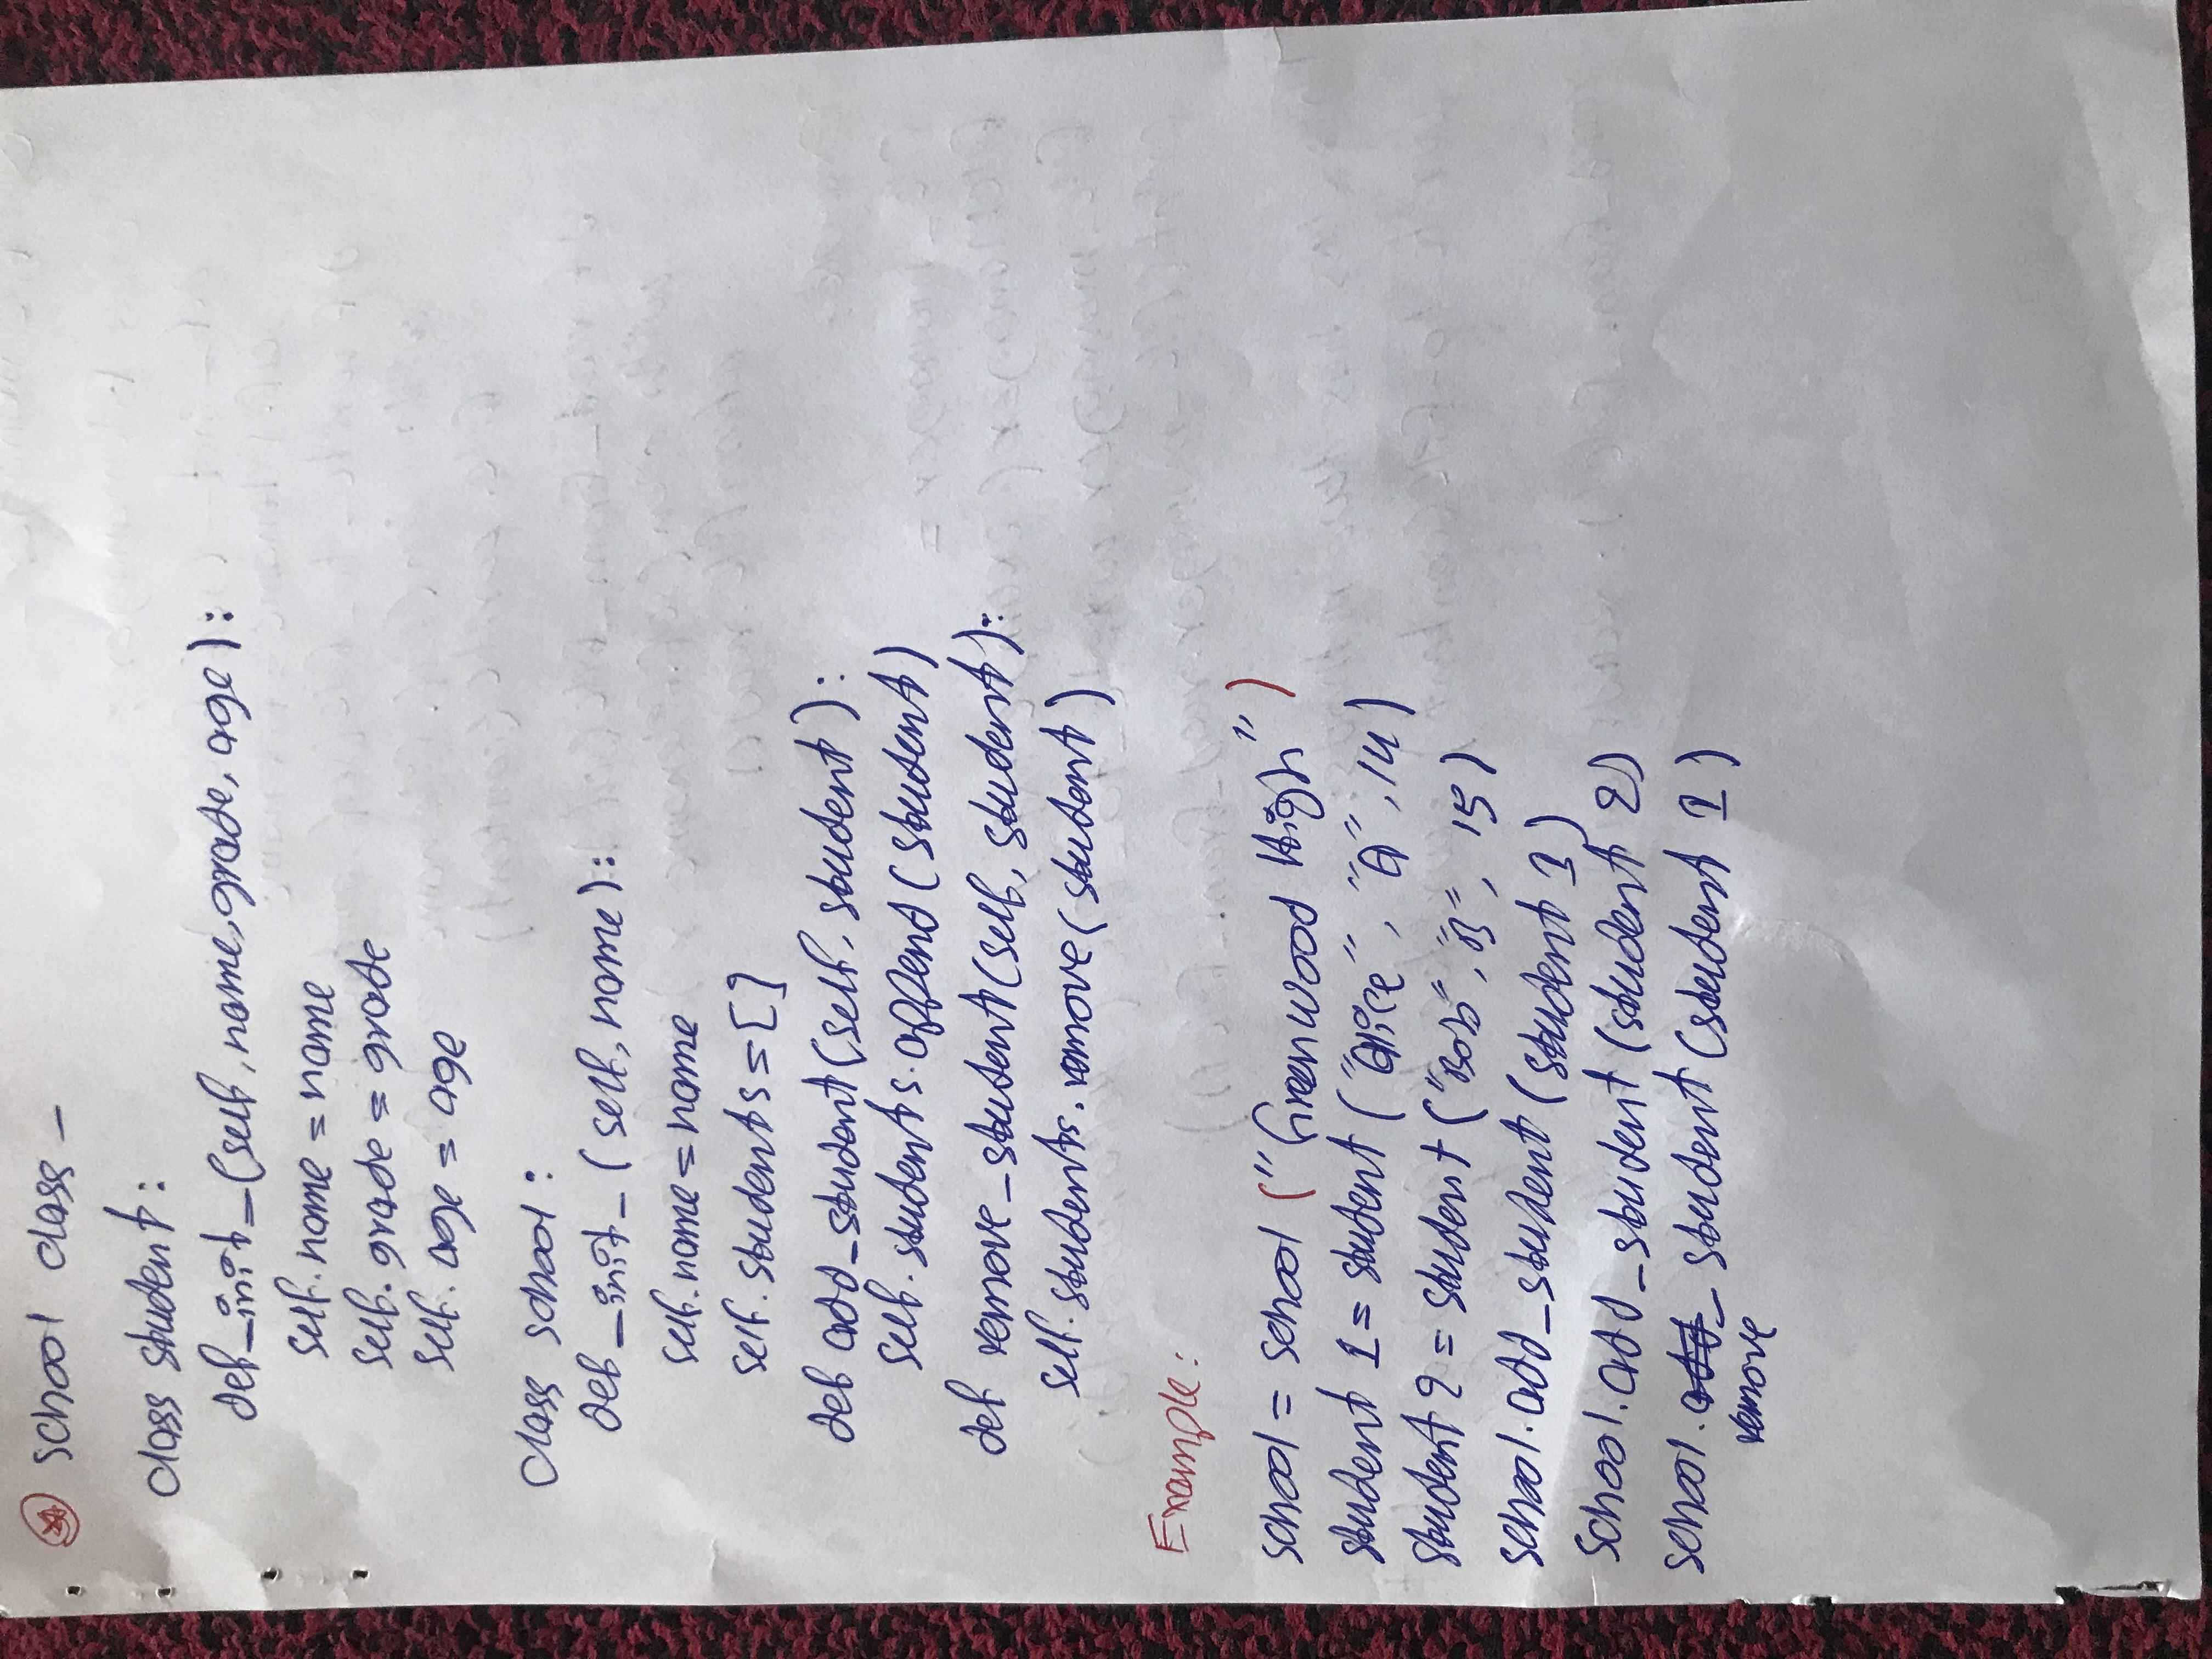 school class –
class student:
def _init_ (self, name, grade, age):
self.name = name
self.grade = grade
self.age = age
class school:
def _init_ (self, name):
self.name = name
self.students = []
def add_student (self, student):
self.students.append (student)
def remove_student (self, student):
self.students.remove (student)
Example:
school = school ("Greenwood High")
student 1 = student ("Alice", "A", 14)
student 2 = student ("Bob", "B", 15)
school.add_student (student 1)
school.add_student (student 2)
school.add_student (student 1)
remove